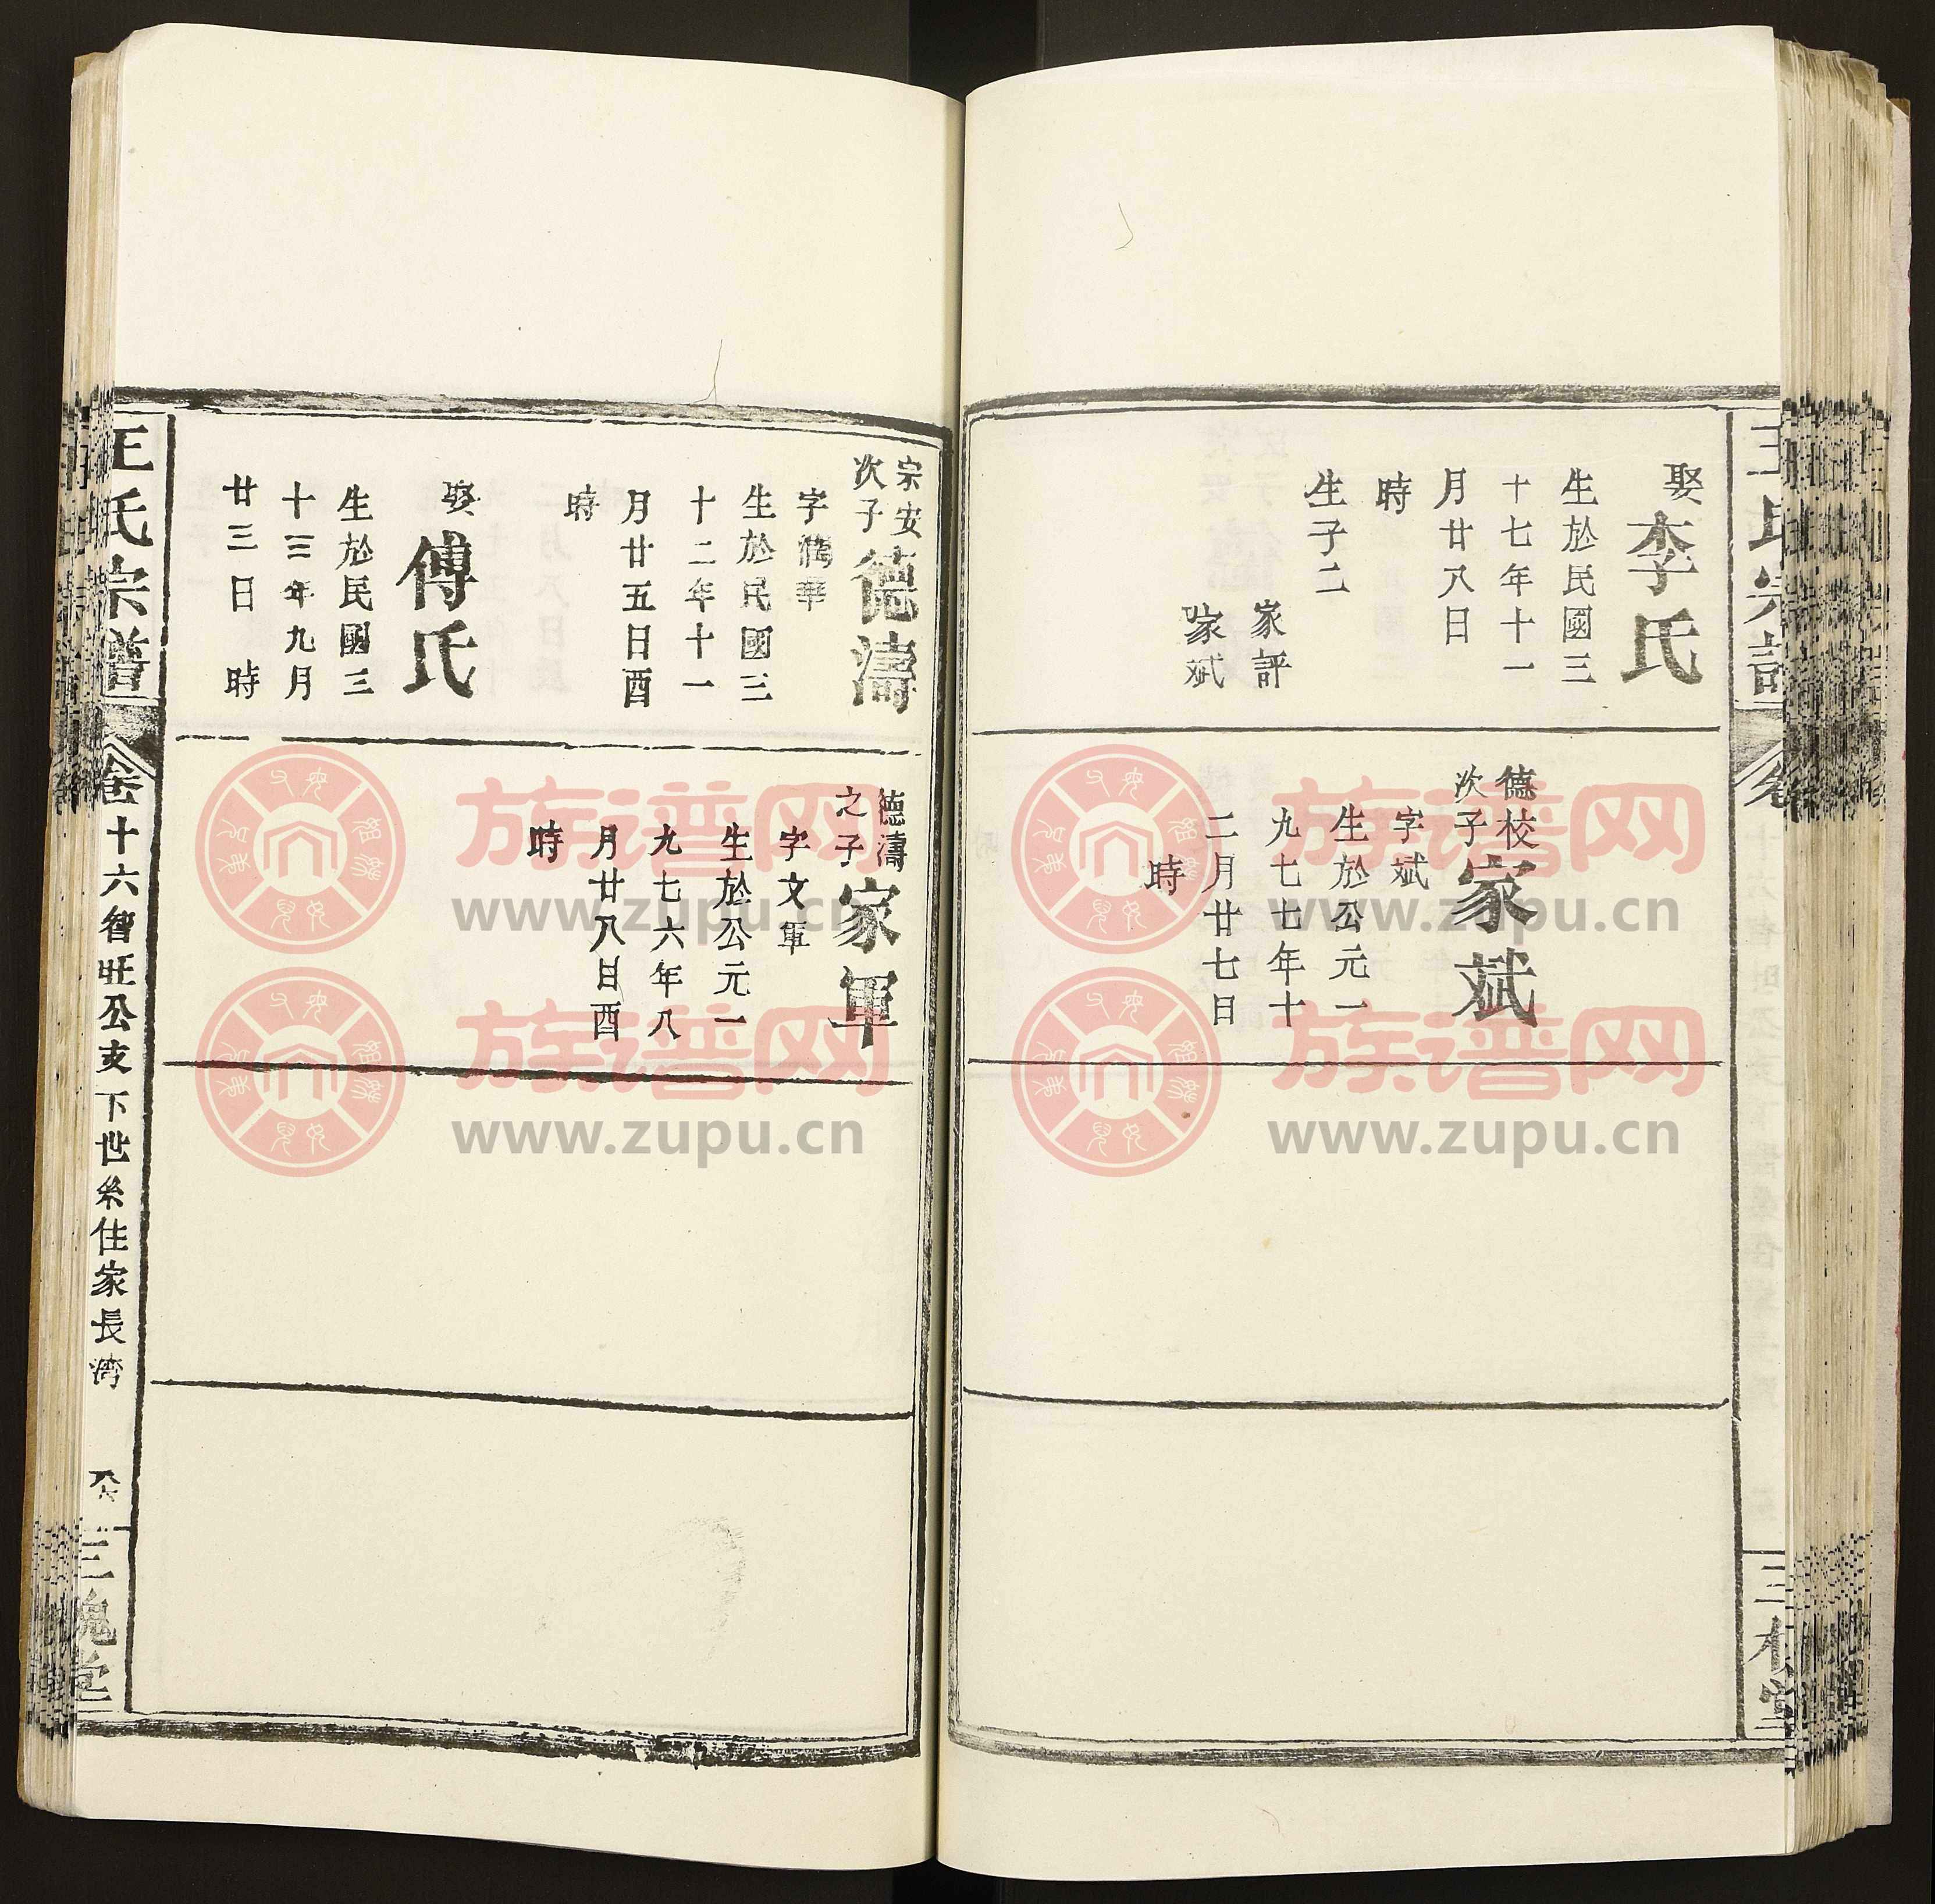 娶
李氏
生於民國三
十七年十一
月廿八日
時
生子二
家評
家斌
德校
次子
家斌
字斌
生於公元一
九七七年十
二月廿七日
時
三槐堂
宗安
次子
德濤
字儒華
生於民國三
十二年十一
月廿五日酉
時
娶
傅氏
生於民國三
十三年九月
廿三日 時
德濤
之子
家軍
字文軍
生於公元一
九七六年八
月廿八日酉
時
王氏宗譜
卷十六智旺公支下世系住家長湾
三槐堂
族谱网
www.zupu.cn
族谱网
www.zupu.cn
族谱网
www.zupu.cn
族谱网
www.zupu.cn